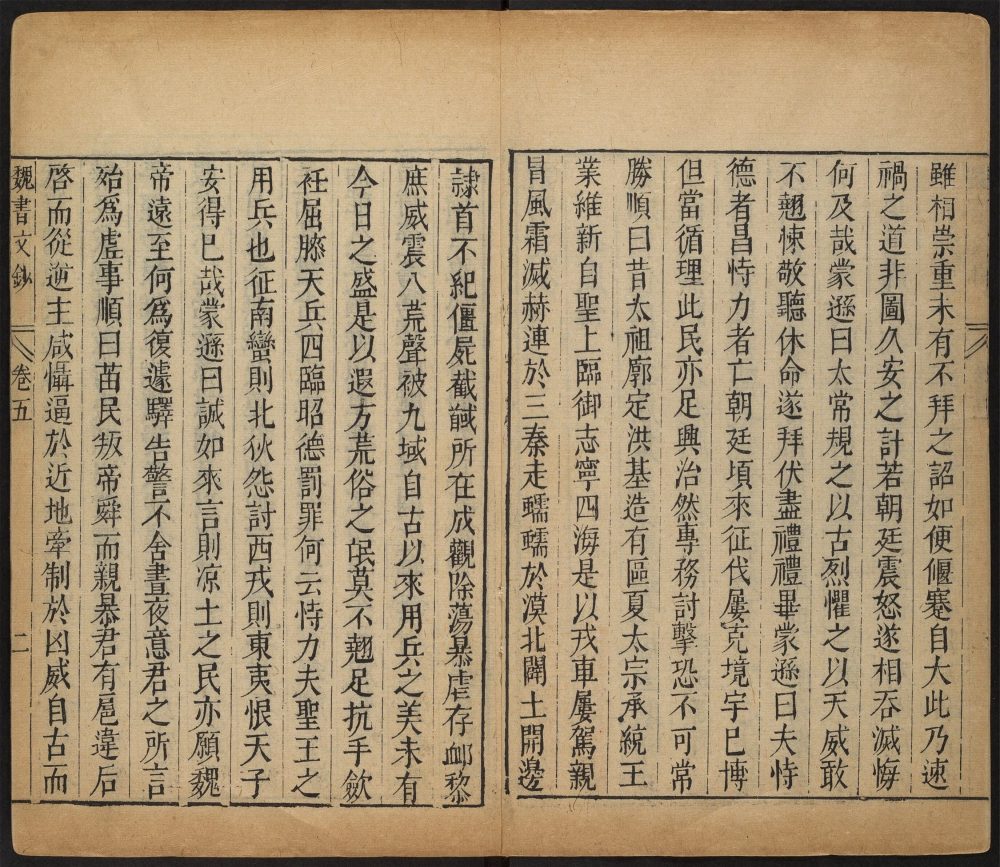 雖相崇重未有不拜之詔如便偃蹇自大此乃速
禍之道非圖久安之計若朝廷震怒遂相吞滅悔
何及哉蒙遜曰太常規之以古烈懼之以天威敢
不翹悚敬聽休命遂拜伏盡禮禮畢蒙遜曰夫恃
德者昌恃力者亡朝廷頃來征伐屢克境宇已博
但當循理此民亦足興治然專務討擊恐不可常
勝順曰昔太祖廓定洪基造有區夏太宗承統王
業維新自聖上臨御志寧四海是以戎車屢駕親
冒風霜滅赫連於三秦走蠕蠕於漠北闢土開邊
隷首不紀僵屍截馘所在成觀除蕩暴虐存䘏黎
庶威震八荒聲被九域自古以來用兵之美未有
今日之盛是以遐方荒俗之氓莫不翹足抗手歛
衽屈膝天兵四臨昭德罰罪何云恃力夫聖王之
用兵也征南蠻則北狄怨討西戎則東夷恨天子
安得已哉蒙遜曰誠如來言則凉土之民亦願魏
帝遠至何爲復遽驛告警不舍晝夜意君之所言
殆爲虛事順曰苗民叛帝舜而親暴君有扈違后
啓而從逆主咸懾逼於近地牽制於凶威自古而
魏書文鈔 卷五 二